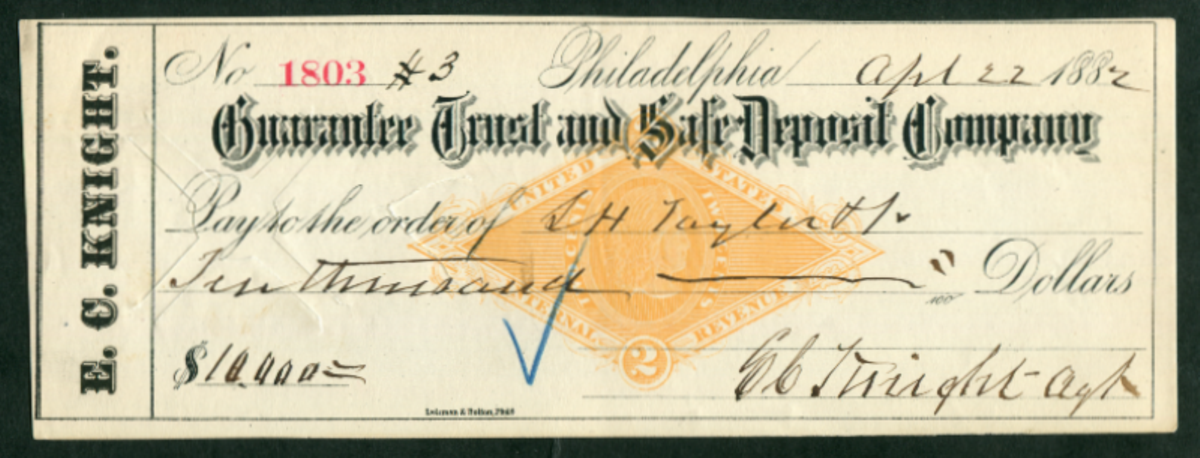 E. C. KNIGHT.
No 1803 #3 Philadelphia Apl 22 1882
Guarantee Trust and Safe Deposit Company
UNITED STATES
Pay to the order of S H Taylor &
Ten thousand Dollars
INTERNAL REVENUE
2
$10,000=
E C Knight Agt